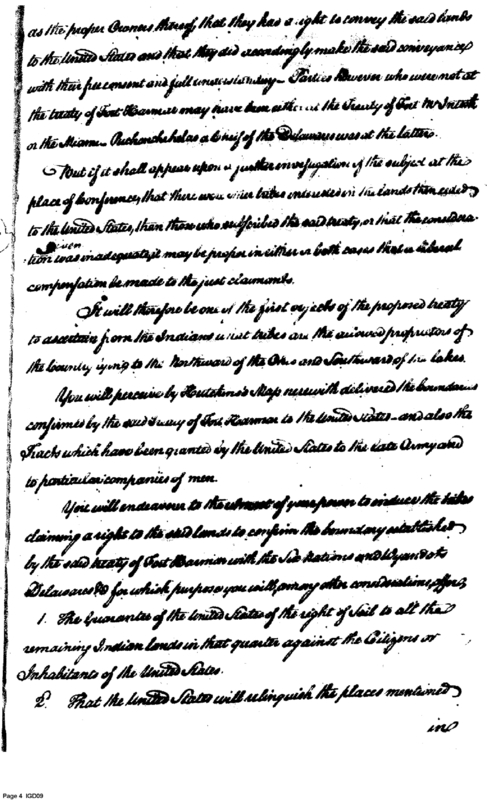 as the proper Owners thereof, that they had a right to convey the said lands
to the United States and that they did accordingly make the said conveyance
with their free consent and full understanding — Parties however who were not at
the treaty of Fort Harmar may have been either at the Treaty of Fort McIntosh
or the Miami. Buckonchehelas a Chief of the Delawares was at the latter.
But if it shall appear upon a further investigation of the subject at the
place of Conference, that there were other tribes interested in the lands then ceded
to the United States, than those who subscribed the said treaty, or that the considera-
given
tion was inadequate, it may be proper in either or both cases that a liberal
compensation be made to the just claimants.
It will therefore be one of the first objects of the proposed treaty
to ascertain from the Indians what tribes are the allowed proprietors of
the Country lying to the Northward of the Ohio and Southward of the lakes.
You will perceive by Hutchins's Map herewith delivered the boundaries
confirmed by the said treaty of Fort Harmar to the United States — and also the
Tracts which have been granted by the United States to the late Army and
to particular companies of men.
You will endeavour to the utmost of your power to induce the tribes
claiming a right to the said lands to confirm the boundary established
by the said treaty of Fort Harmar with the Six Nations and Wyandots
Delawares &c for which purpose you will, among other considerations, offer,
1. The Guarantee of the United States of the right of Soil to all the
remaining Indian lands in that quarter against the Citizens or
Inhabitants of the United States.
2. That the United States will relinquish the places mentioned
in
Page 4 IGD09